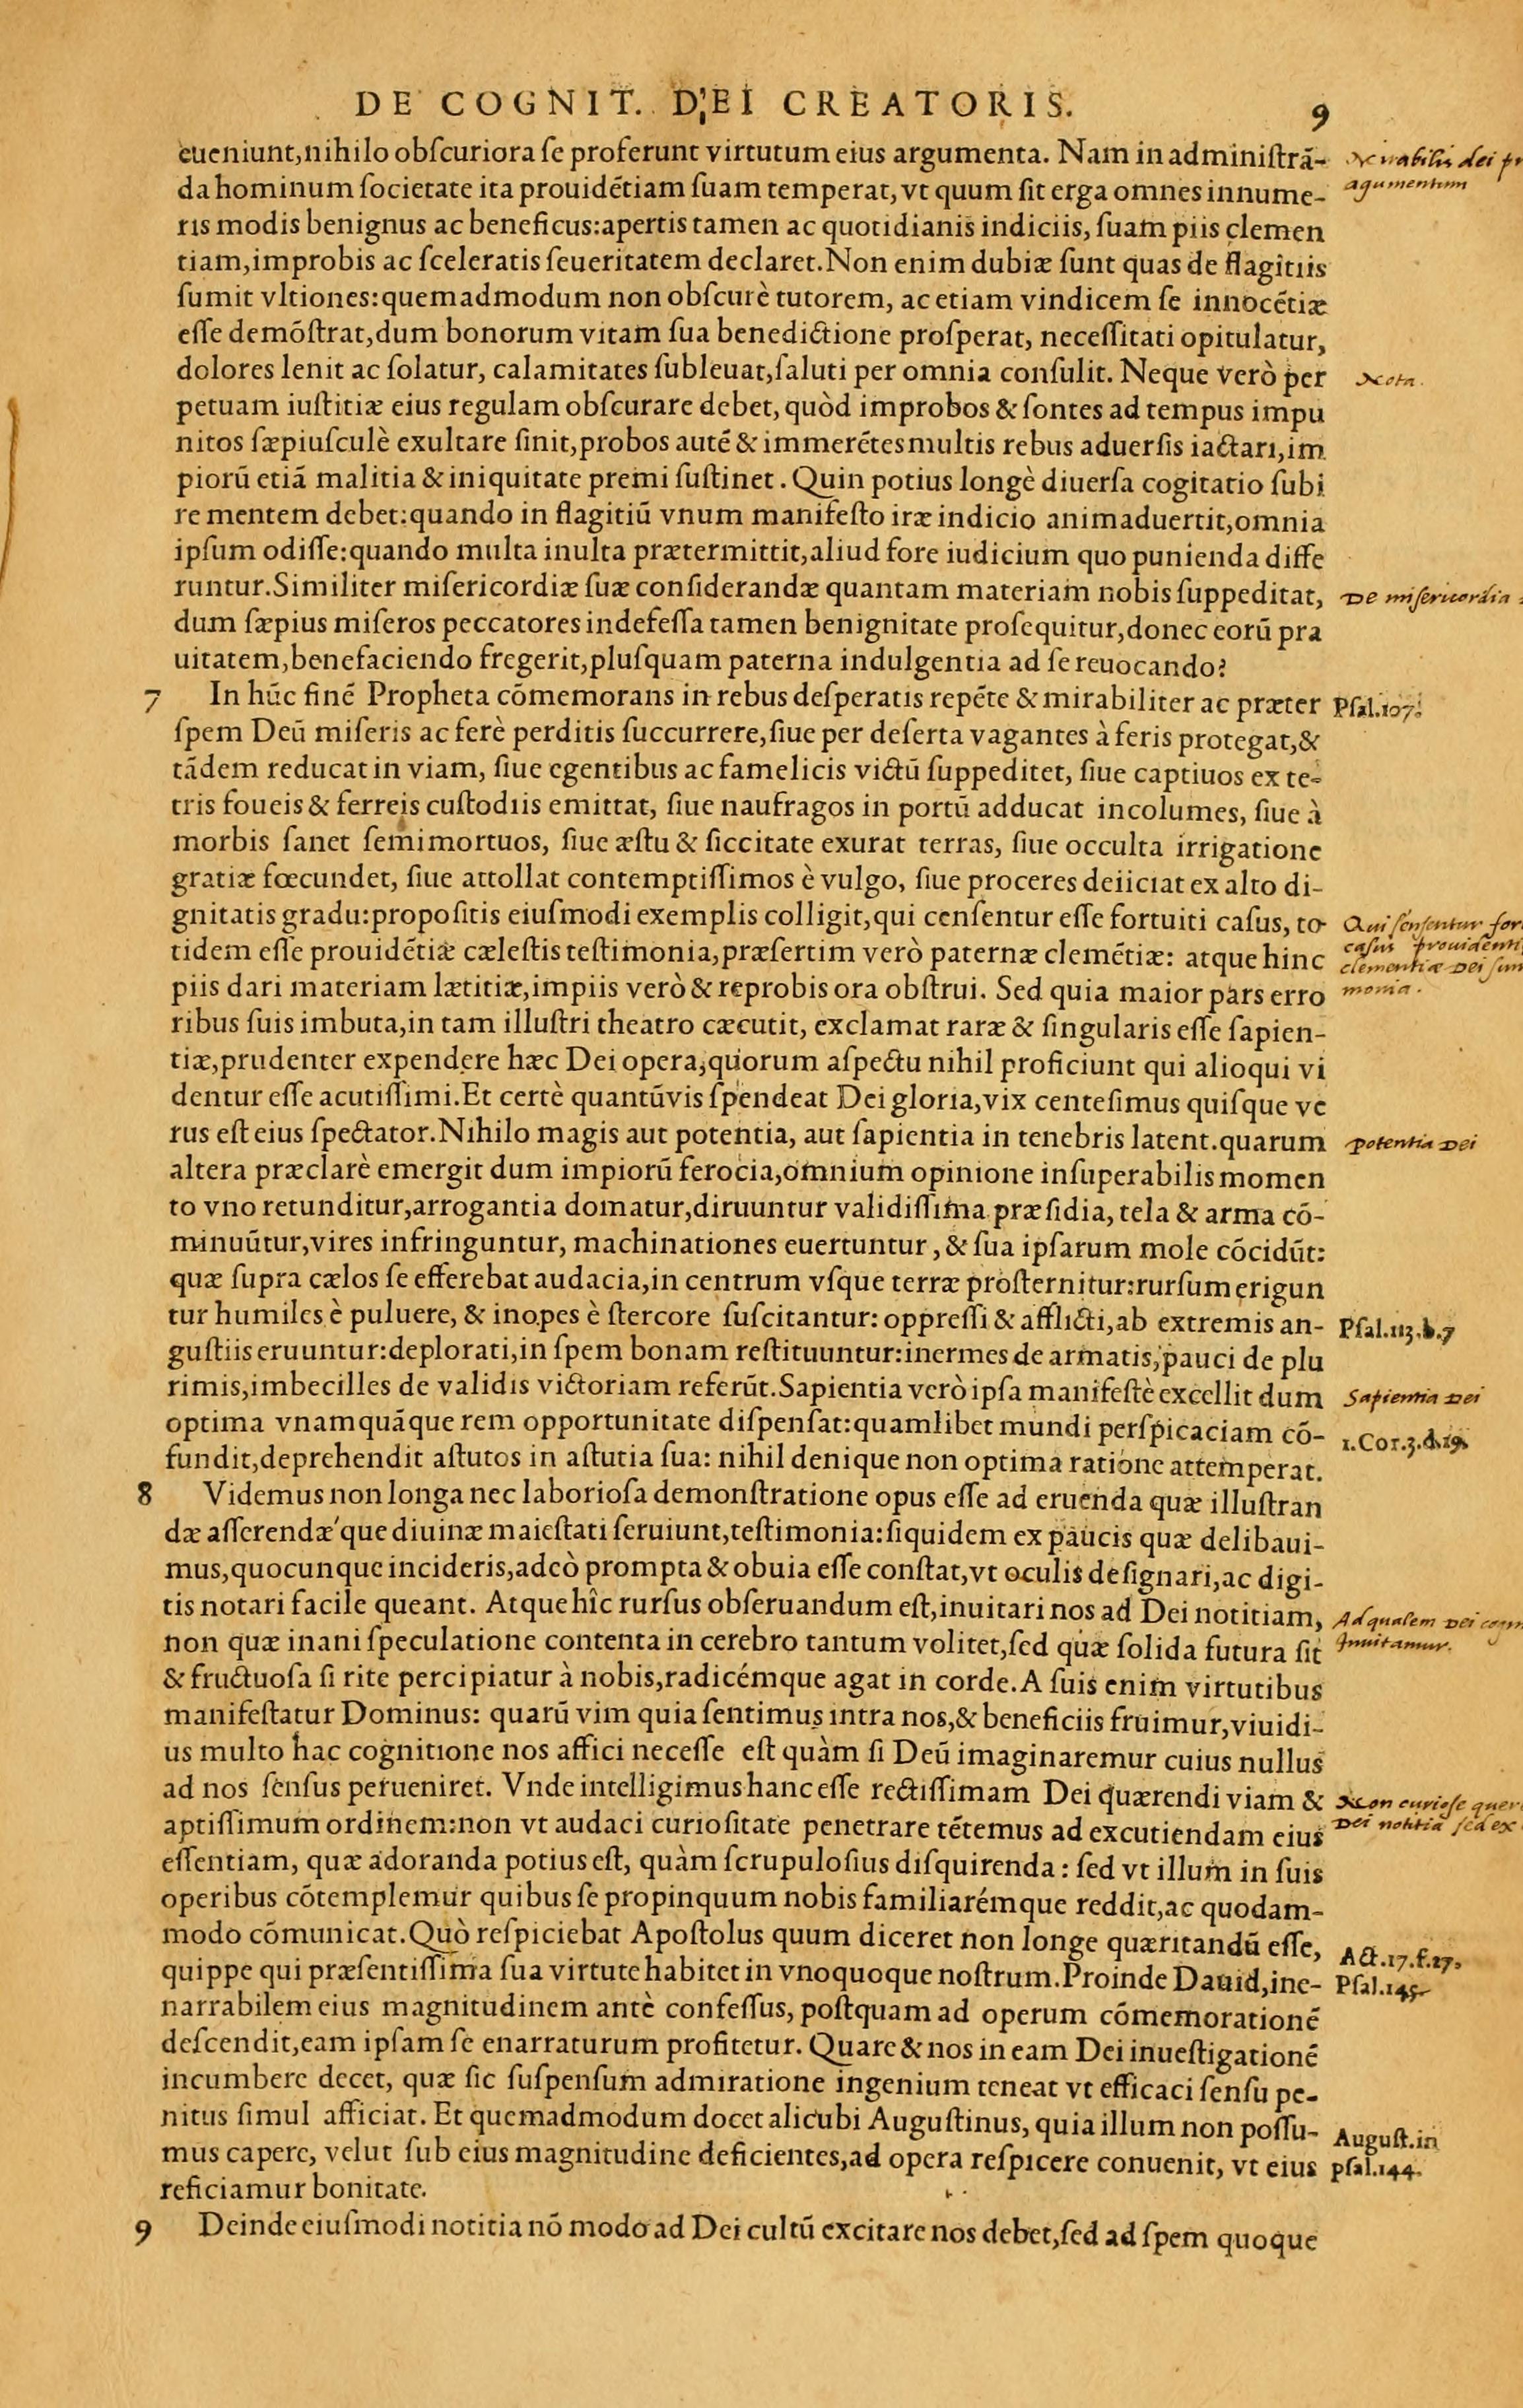 DE COGNIT. DEI CREATORIS. 9
eueniunt,nihilo obſcuriora ſe proferunt virtutum eius argumenta. Nam in adminiſtrã-
da hominum ſocietate ita prouidẽtiam ſuam temperat, vt quum ſit erga omnes innume-
ris modis benignus ac beneficus:apertis tamen ac quotidianis indiciis, ſuam piis clemen
tiam,improbis ac ſceleratis ſeueritatem declaret.Non enim dubiæ ſunt quas de flagitiis
ſumit vltiones:quemadmodum non obſcurè tutorem, ac etiam vindicem ſe innocẽtiæ
eſſe demõſtrat,dum bonorum vitam ſua benedictione proſperat, neceſſitati opitulatur,
dolores lenit ac ſolatur, calamitates ſubleuat,ſaluti per omnia conſulit. Neque verò per
petuam iuſtitiæ eius regulam obſcurare debet, quòd improbos & ſontes ad tempus impu
nitos ſæpiuſculè exultare ſinit,probos autẽ & immerẽtes multis rebus aduerſis iactari,im
piorũ etiã malitia & iniquitate premi ſuſtinet. Quin potius longè diuerſa cogitatio ſubi
re mentem debet:quando in flagitiũ vnum manifeſto iræ indicio animaduertit,omnia
ipſum odiſſe:quando multa inulta prætermittit,aliud fore iudicium quo punienda diffe
runtur.Similiter miſericordiæ ſuæ conſiderandæ quantam materiam nobis ſuppeditat,
dum ſæpius miſeros peccatores indefeſſa tamen benignitate proſequitur,donec eorũ pra
uitatem,benefaciendo fregerit,pluſquam paterna indulgentia ad ſe reuocando?
7 In hũc finẽ Propheta cõmemorans in rebus deſperatis repẽte & mirabiliter ac præter
ſpem Deũ miſeris ac ferè perditis ſuccurrere,ſiue per deſerta vagantes à feris protegat,&
tãdem reducat in viam, ſiue egentibus ac famelicis victũ ſuppeditet, ſiue captiuos ex te-
tris foueis & ferreis cuſtodiis emittat, ſiue naufragos in portũ adducat incolumes, ſiue à
morbis ſanet ſemimortuos, ſiue æſtu & ſiccitate exurat terras, ſiue occulta irrigatione
gratiæ fœcundet, ſiue attollat contemptiſſimos è vulgo, ſiue proceres deiiciat ex alto di-
gnitatis gradu:propoſitis eiuſmodi exemplis colligit,qui cenſentur eſſe fortuiti caſus, to-
tidem eſſe prouidẽtiæ cæleſtis teſtimonia,præſertim verò paternæ clemẽtiæ: atque hinc
piis dari materiam lætitiæ,impiis verò & reprobis ora obſtrui. Sed quia maior pars erro
ribus ſuis imbuta,in tam illuſtri theatro cæcutit, exclamat raræ & ſingularis eſſe ſapien-
tiæ,prudenter expendere hæc Dei opera,quorum aſpectu nihil proficiunt qui alioqui vi
dentur eſſe acutiſſimi.Et certè quantũvis ſpendeat Dei gloria,vix centeſimus quiſque ve
rus eſt eius ſpectator.Nihilo magis aut potentia, aut ſapientia in tenebris latent.quarum
altera præclarè emergit dum impiorũ ferocia,omnium opinione inſuperabilis momen
to vno retunditur,arrogantia domatur,diruuntur validiſſima præſidia, tela & arma cõ-
minuũtur,vires infringuntur, machinationes euertuntur, & ſua ipſarum mole cõcidũt:
quæ ſupra cælos ſe efferebat audacia,in centrum vſque terræ proſternitur:rurſum erigun
tur humiles è puluere, & inopes è ſtercore ſuſcitantur: oppreſſi & afflicti,ab extremis an-
guſtiis eruuntur:deplorati,in ſpem bonam reſtituuntur:inermes de armatis,pauci de plu
rimis,imbecilles de validis victoriam referũt.Sapientia verò ipſa manifeſtè excellit dum
optima vnamquãque rem opportunitate diſpenſat:quamlibet mundi perſpicaciam cõ-
fundit,deprehendit aſtutos in aſtutia ſua: nihil denique non optima ratione attemperat.
8 Videmus non longa nec laborioſa demonſtratione opus eſſe ad eruenda quæ illuſtran
dæ aſſerendæ'que diuinæ maieſtati ſeruiunt,teſtimonia:ſiquidem ex paucis quæ delibaui-
mus,quocunque incideris,adeò prompta & obuia eſſe conſtat,vt oculis deſignari,ac digi-
tis notari facile queant. Atque hîc rurſus obſeruandum eſt,inuitari nos ad Dei notitiam,
non quæ inani ſpeculatione contenta in cerebro tantum volitet,ſed quæ ſolida futura ſit
& fructuoſa ſi rite percipiatur à nobis,radicémque agat in corde.A ſuis enim virtutibus
manifeſtatur Dominus: quarũ vim quia ſentimus intra nos,& beneficiis fruimur,viuidi-
us multo hac cognitione nos affici neceſſe eſt quàm ſi Deũ imaginaremur cuius nullus
ad nos ſenſus perueniret. Vnde intelligimus hanc eſſe rectiſſimam Dei quærendi viam &
aptiſſimum ordinem:non vt audaci curioſitate penetrare tẽtemus ad excutiendam eius
eſſentiam, quæ adoranda potius eſt, quàm ſcrupuloſius diſquirenda: ſed vt illum in ſuis
operibus cõtemplemur quibus ſe propinquum nobis familiarémque reddit,ac quodam-
modo cõmunicat.Quò reſpiciebat Apoſtolus quum diceret non longe quæritandũ eſſe,
quippe qui præſentiſſima ſua virtute habitet in vnoquoque noſtrum.Proinde Dauid,ine-
narrabilem eius magnitudinem antè confeſſus, poſtquam ad operum cõmemorationẽ
deſcendit,eam ipſam ſe enarraturum profitetur. Quare & nos in eam Dei inueſtigationẽ
incumbere decet, quæ ſic ſuſpenſum admiratione ingenium teneat vt efficaci ſenſu pe-
nitus ſimul afficiat. Et quemadmodum docet alicubi Auguſtinus, quia illum non poſſu-
mus capere, velut ſub eius magnitudine deficientes,ad opera reſpicere conuenit, vt eius
reficiamur bonitate.
9 Deinde eiuſmodi notitia nõ modo ad Dei cultũ excitare nos debet,ſed ad ſpem quoque
dei
agumentum
Nota.
De miſericordia
Pſal.107.
Qui ſenſentur for
caſus prouidenti
clementiæ Dei
monia.
potentia Dei
Pſal.113.b.7
Sapientia Dei
1.Cor.3.d.19.
Ad qualem Dei
Inuitamur.
Non curioſe quer
Dei notitia ſed ex
Act.17.f.27.
Pſal.145.
Auguſt.in
pſal.144.